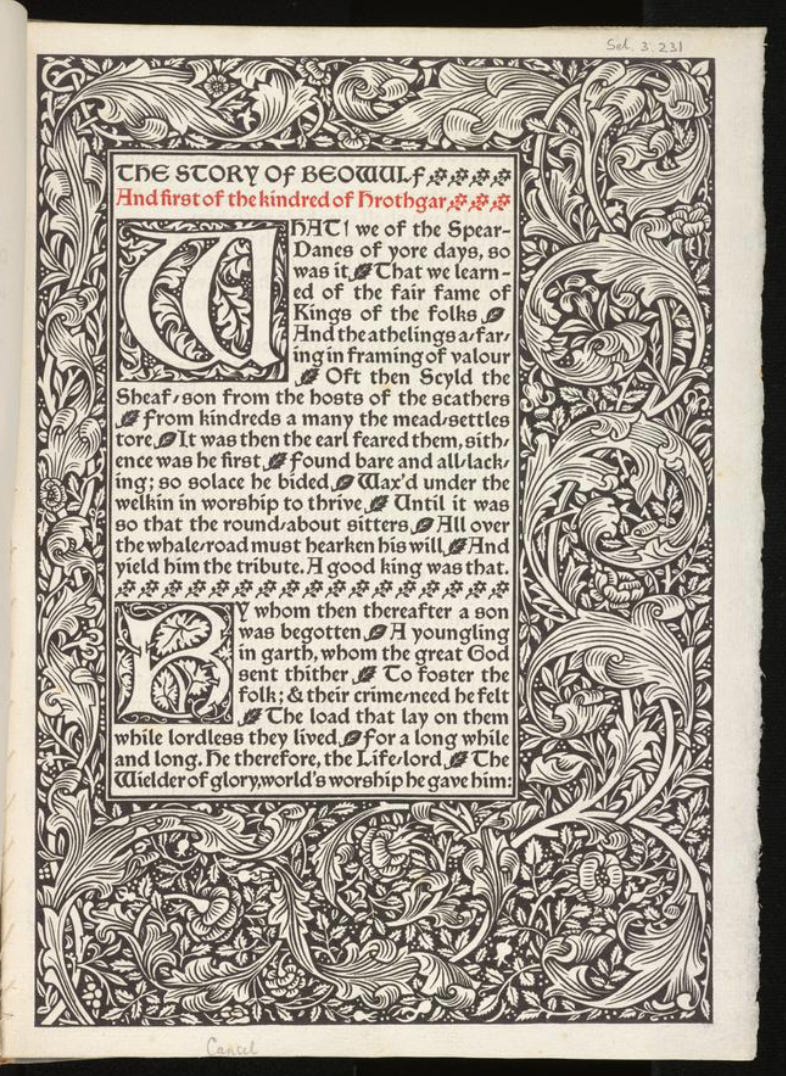 Sel. 3. 231
THE STORY OF BEOWULF
And first of the kindred of Hrothgar
WHAT! we of the Spear-
Danes of yore days, so
was it That we learn-
ed of the fair fame of
Kings of the folks
And the athelings a-far-
ing in framing of valour
Oft then Scyld the
Sheaf-son from the hosts of the scathers
From kindreds a many the mead-settles
tore It was then the earl feared them, sith-
ence was he first Found bare and all-lack-
ing; so solace he bided Wax'd under the
welkin in worship to thrive Until it was
so that the round-about sitters All over
the whale-road must hearken his will And
yield him the tribute. A good king was that.
BY whom then thereafter a son
was begotten A youngling
in garth, whom the great God
sent thither To foster the
folk; & their crime-need he felt
The load that lay on them
while lordless they lived For a long while
and long. He therefore, the Life-lord The
Wielder of glory, world's worship he gave him:
Cancel